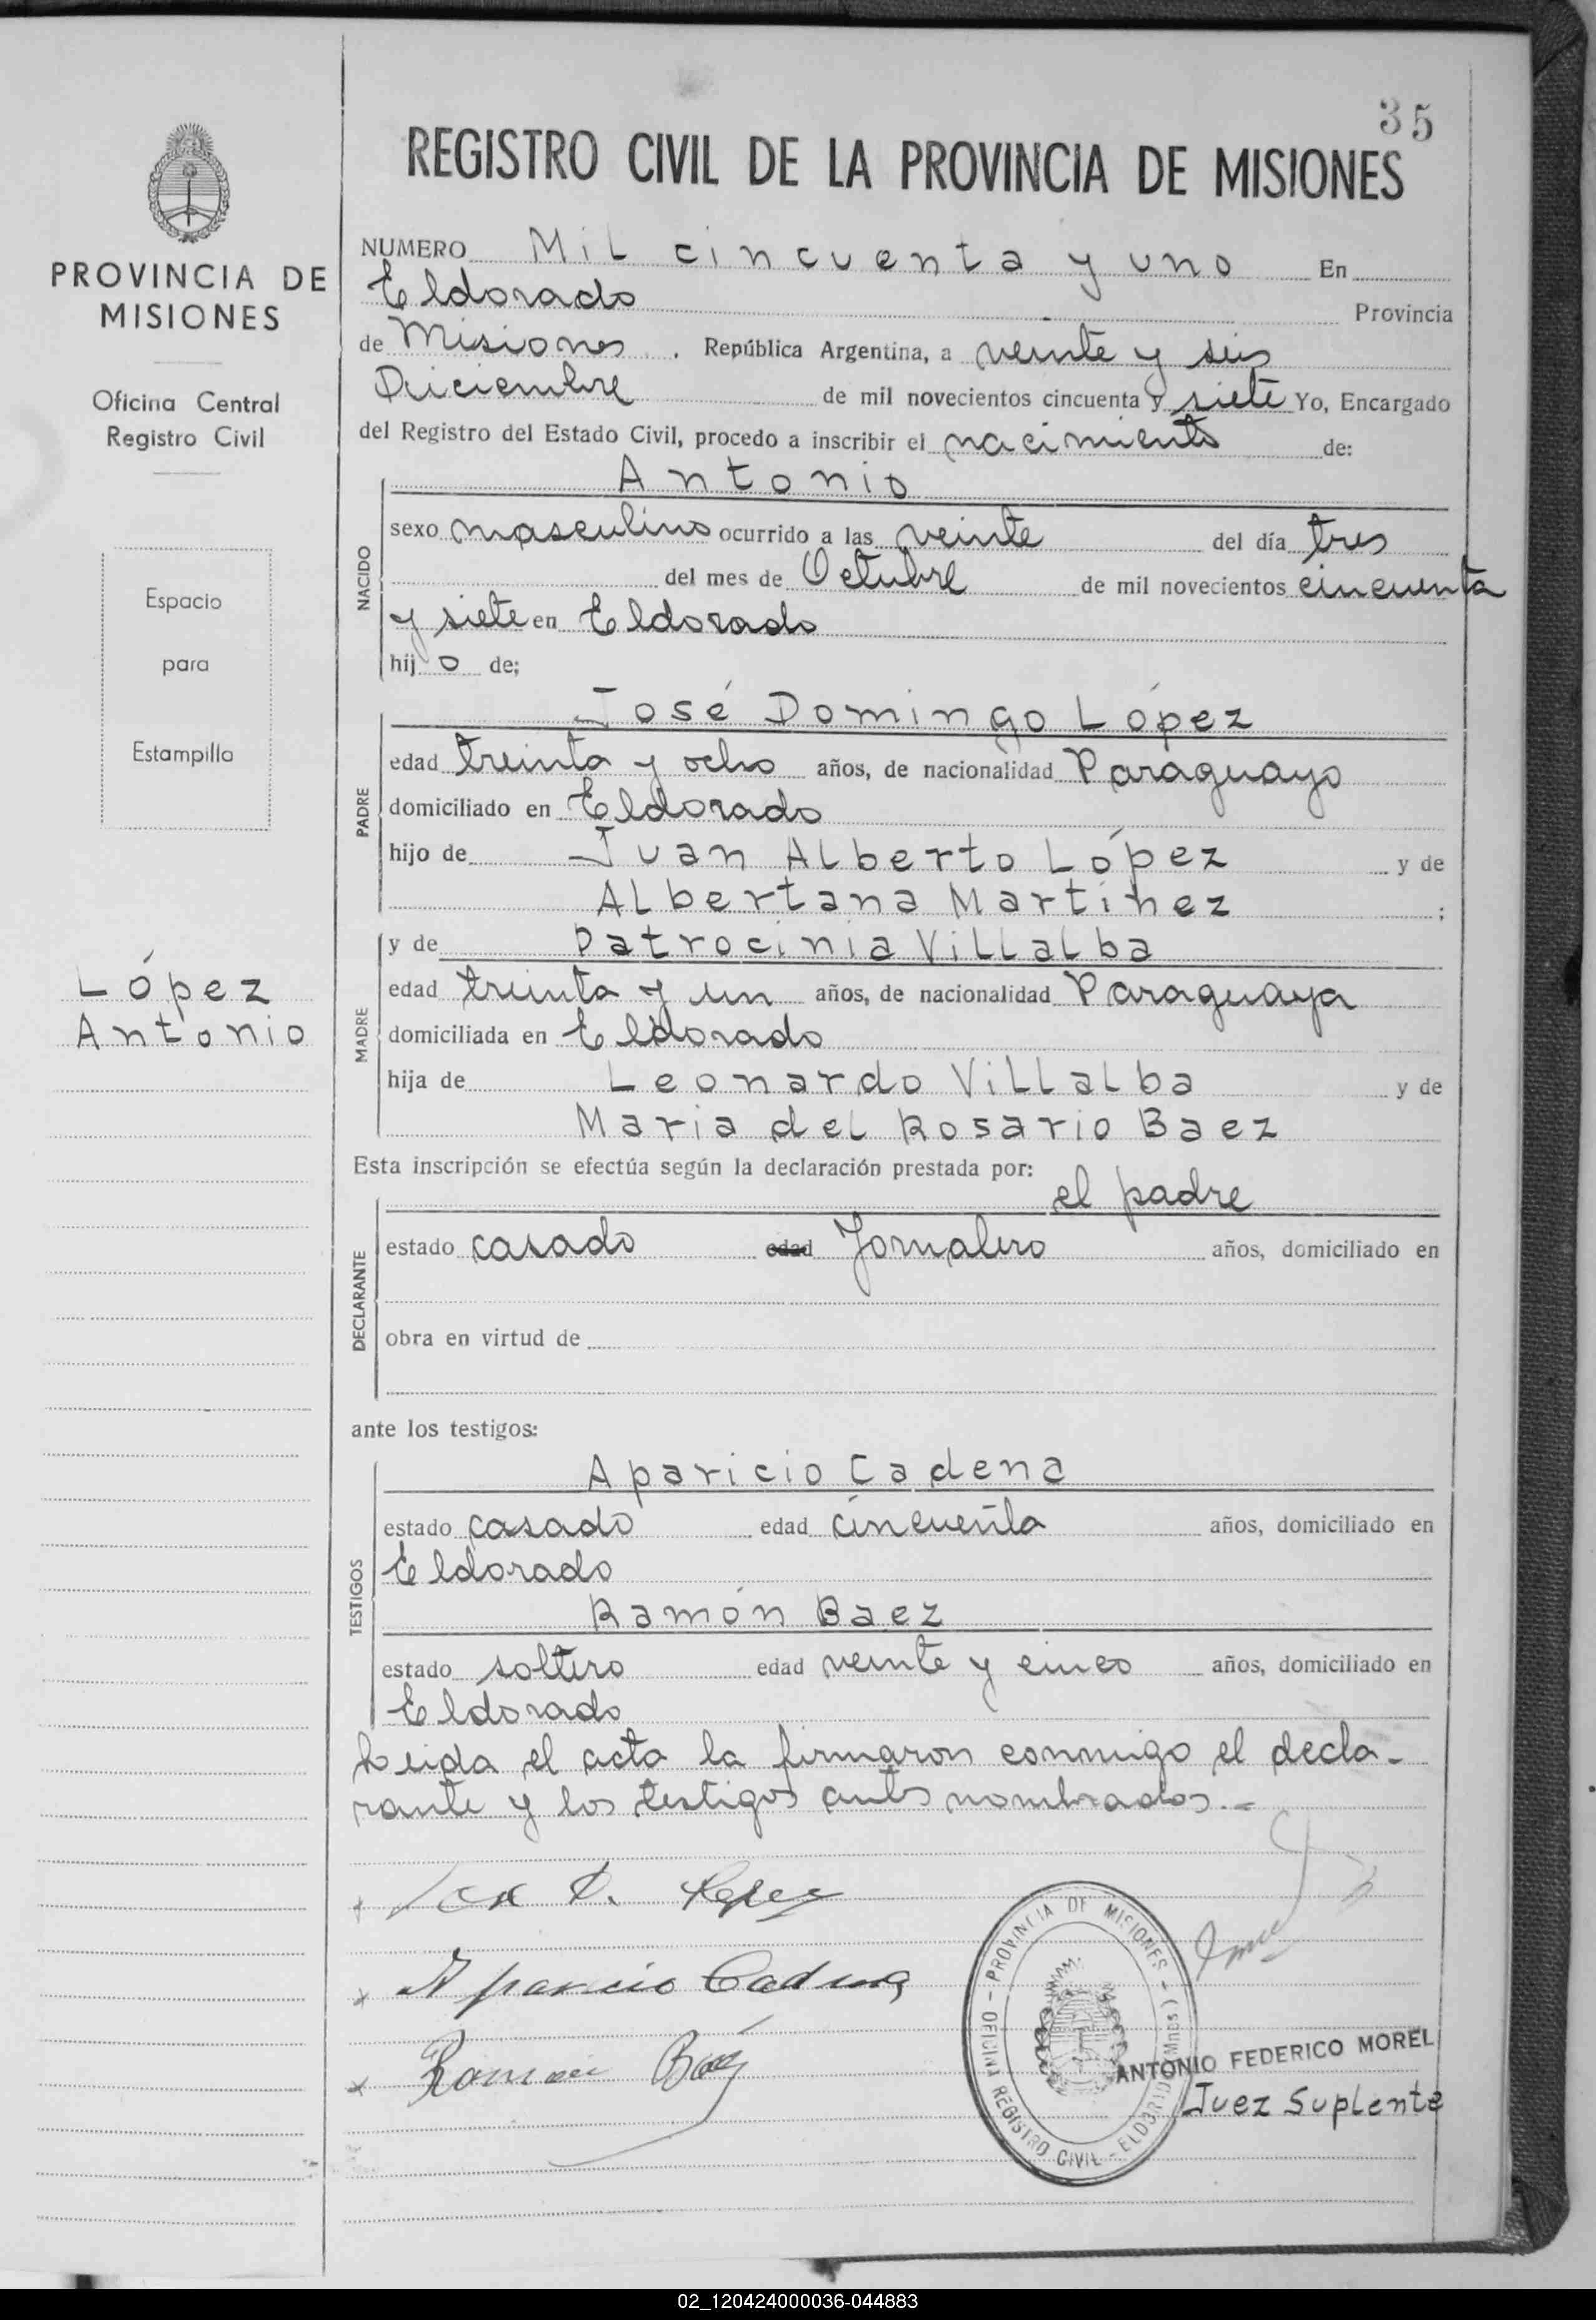 35
REGISTRO CIVIL DE LA PROVINCIA DE MISIONES
PROVINCIA DE
MISIONES
Oficina Central
Registro Civil
Espacio
para
Estampilla
López
Antonio
NUMERO Mil cincuenta y uno En
Eldorado Provincia
de Misiones . República Argentina, a veinte y seis
Diciembre de mil novecientos cincuenta y siete Yo, Encargado
del Registro del Estado Civil, procedo a inscribir el nacimiento de:
Antonio
NACIDO
sexo masculino ocurrido a las veinte del día tres
del mes de Octubre de mil novecientos cincuenta
y siete en Eldorado
hij o de;
José Domingo López
PADRE
edad treinta y ocho años, de nacionalidad Paraguayo
domiciliado en Eldorado
hijo de Juan Alberto López y de
Albertana Martínez ;
y de Patrocinia Villalba
MADRE
edad treinta y un años, de nacionalidad Paraguaya
domiciliada en Eldorado
hija de Leonardo Villalba y de
Maria del Rosario Baez
Esta inscripción se efectúa según la declaración prestada por:
el padre
DECLARANTE
estado casado edad Jornalero años, domiciliado en
obra en virtud de
ante los testigos:
Aparicio Cadena
TESTIGOS
estado casado edad cincuenta años, domiciliado en
Eldorado
Ramón Baez
estado soltero edad veinte y cinco años, domiciliado en
Eldorado
Leida el acta la firmaron conmigo el decla-
rante y los testigos antes nombrados.-
x Jose D. Lopez
x Aparicio Cadena
x Ramon Baez
PROVINCIA DE MISIONES - OFICINA REGISTRO CIVIL - ELDORADO (Mnes)
ANTONIO FEDERICO MOREL
Juez Suplente
02_120424000036-044883